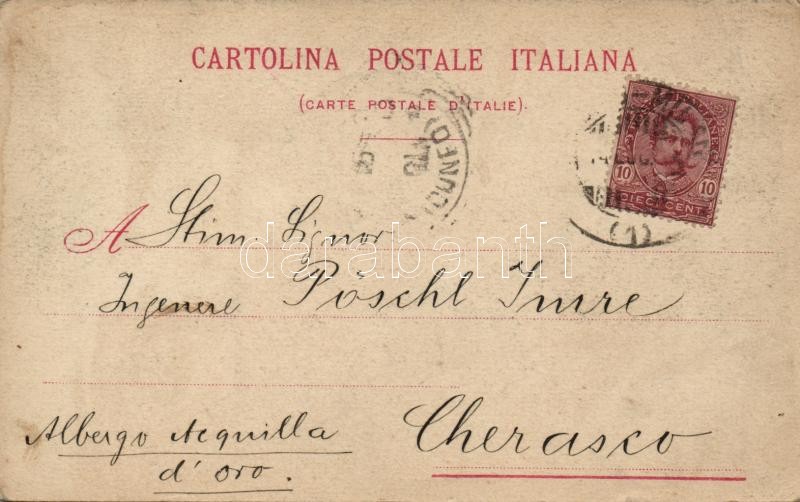 CARTOLINA POSTALE ITALIANA
(CARTE POSTALE D'ITALIE).
10 10
DIECI CENT.
(CUNEO)
(1)
A Stim. Signor
Ingenere Pöschl Imre
darabanth
Albergo Acquilla
d'oro.
Cherasco